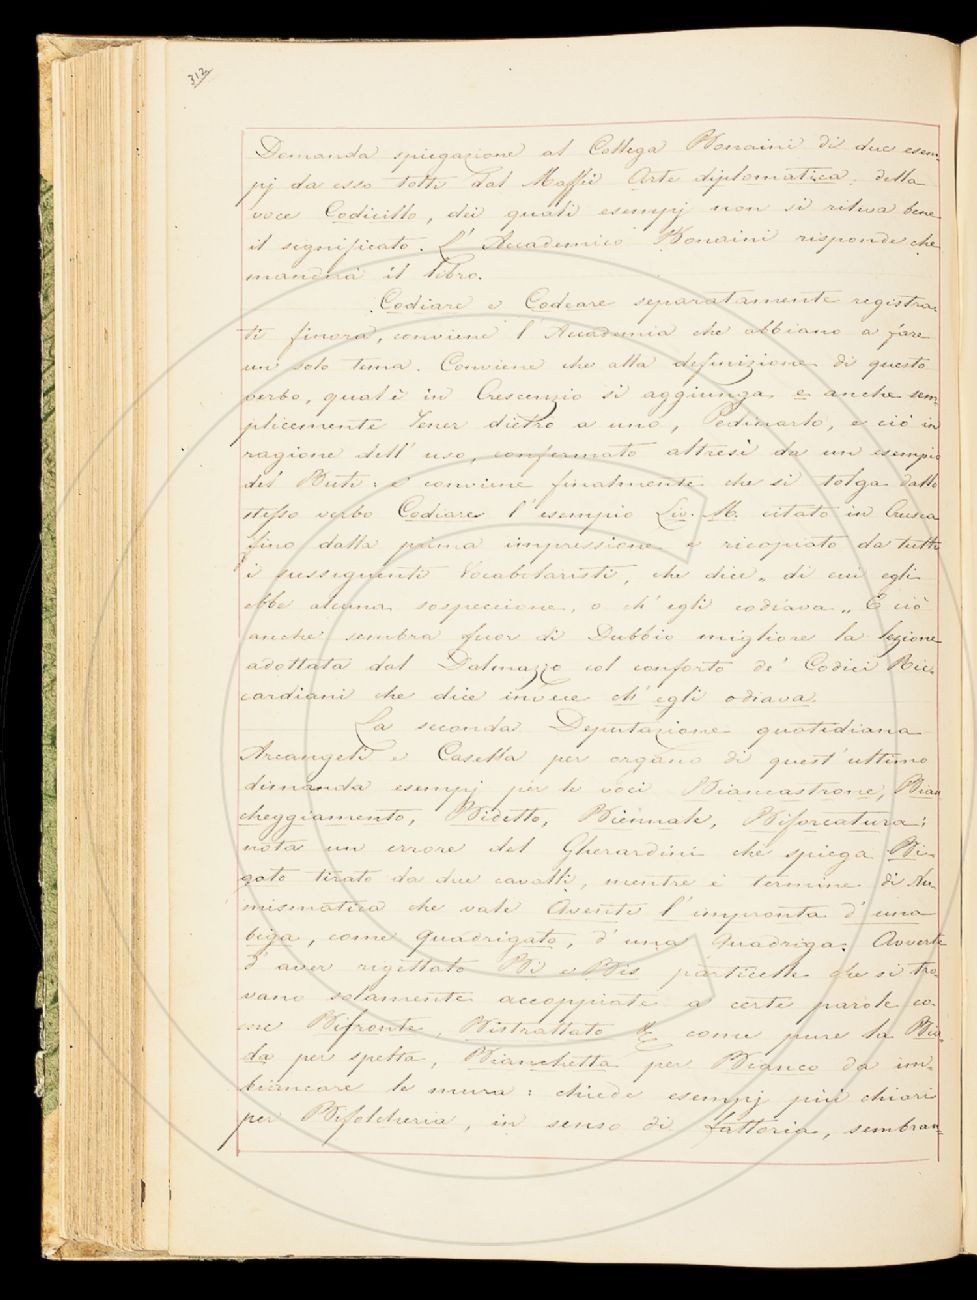 312
Domanda spiegazione al Collega Bonaini di due esem-
pj da esso tolti dal Maffei Arte diplomatica, della
voce Codicillo, dei quali esempj non si rileva bene
il significato. L'Accademico Bonaini risponde che
manderà il libro.
Codiare e Codeare separatamente registra-
ti finora, conviene l'Accademia che abbiano a fare
un solo tema. Conviene che alla definizione di questo
verbo, qual è in Crescenzio si aggiunga e anche sem-
plicemente Tener dietro a uno, Pedinarlo, e ciò in
ragione dell'uso, confermato altresì da un esempio
del Buti: e conviene finalmente che si tolga dallo
stesso verbo Codiare l'esempio Liv. M. citato in Crusca
fino dalla prima impressione e ricopiato da tutti
i susseguenti Vocabolaristi, che dice „ di cui egli
ebbe alcuna sospeccione, o ch'egli codiava „ E ciò
anche sembra fuor di Dubbio migliore la lezione
adottata dal Dalmazzo col conforto de' Codici Ric-
cardiani che dice invece ch'egli odiava.
La seconda Deputazione quotidiana
Arcangeli e Casella per organo di quest'ultimo
dimanda esempj per le voci Biancastrone, Bian
cheggiamento, Bidetto, Biennale, Biforcatura;
nota un errore del Gherardini che spiega Bi-
gato tirato da due cavalli, mentre è termine di Nu-
mismatica che vale Avente l'impronta d'una
biga, come quadrigato, d'una quadriga. Avverte
d'aver rigettato Bi e Bis particelle che si tro
vano solamente accoppiate a certe parole co-
me Bifronte, Bistrattato &c come pure la Bia-
da per spelta, Bianchetta per Bianco da im-
biancare le mura: chiede esempj più chiari
per Bifolcheria, in senso di fattoria, sembran-